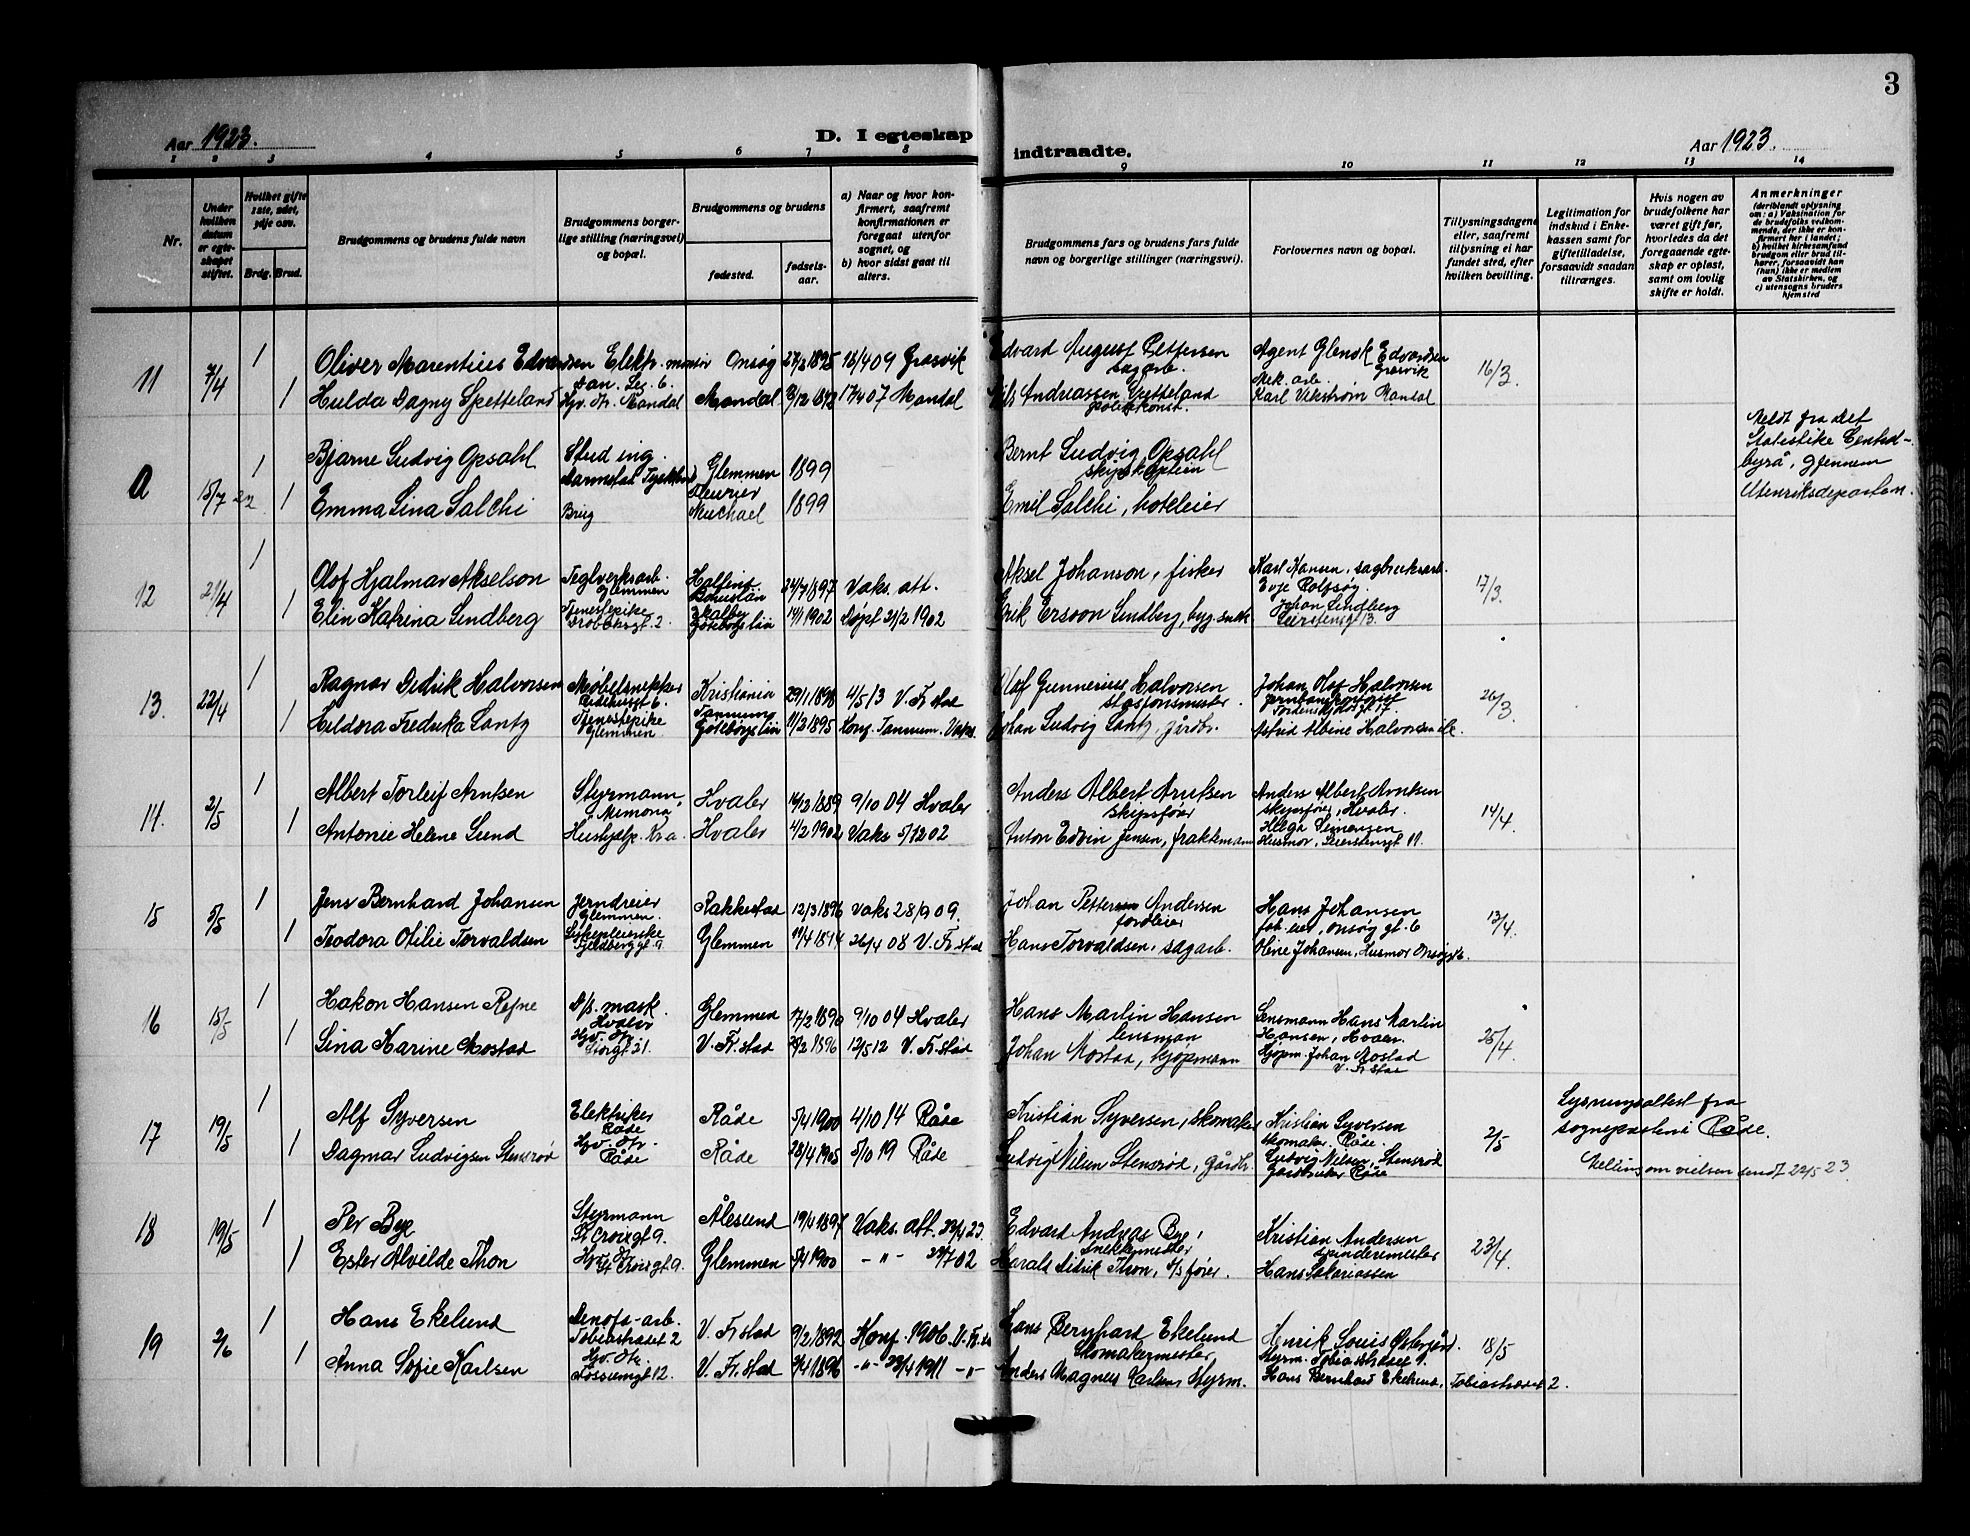 3
Aar 1923.
D. I egteskap
indtraadte.
Aar 1923.
1 2 3 4 5 6 7 8 9 10 11 12 13 14
Nr.
Under hvilken datum er egteskapet stiftet.
Hvilket gifte 1ste, 2det, 3dje osv.
Brdg. Brud.
Brudgommens og brudens fulde navn
Brudgommens borgerlige stilling (næringsvei) og bopæl.
Brudgommens og brudens
fødested.
fødselsaar.
a) Naar og hvor konfirmert, saafremt konfirmationen er foregaat utenfor sognet, og
b) hvor sidst gaat til alters.
Brudgommens fars og brudens fars fulde navn og borgerlige stillinger (næringsvei).
Forlovernes navn og bopæl.
Tillysningsdagene eller, saafremt tillysning ei har fundet sted, efter hvilken bevilling.
Legitimation for indskud i Enkekassen samt for giftetilladelse, forsaavidt saadan tiltrænges.
Hvis nogen av brudefolkene har været gift før, hvorledes da det foregaaende egteskap er opløst, samt om lovlig skifte er holdt.
Anmerkninger
(deriblandt oplysning om: a) Vaksination for de brudefolks vedkommende, der ikke er konfirmert her i landet; b) hvilket kirkesamfund brudgom eller brud tilhører, forsaavidt han (hun) ikke er medlem av Statskirken, og c) utensogns bruders hjemsted
11 7/4 1 Oliver Marentius Edvardsen Elektr. montør Onsøy 27/2 1895 18/4 09 Gresvik Edvard August Pettersen sagarb. Agent Glenok Edvardsen Gresvik 16/3.
1 Hulda Dagny Spetteland Hjv. dtr. Mandal Mandal 12 1892 17/4 07 Mandal Nils Andreassen Spetteland politikonst. Mek. arb. Karl Vikstrøm Mandal
a 15/7 22 1 Bjarne Ludvig Opsahl Stud ing. Darmstad Tyskland Glemmen 1899 Bernt Ludvig Opsahl skipskaptein
1 Emma Lina Salchi Brig Fleurier Neuchael 1899 Emil Salchi, hoteleier
Meldt fra det Statistike Centralbyrå, gjennem Utenriksdepartem.
12 21/4 1 Olof Hjalmar Akselson Teglverksarb. Glemmen Bohuslän 24/7 1897 Vaks. att. Aksel Johanson, fisker Karl Hansen, sagbruksarb. Evje Rolfsøy 17/3.
1 Elin Katrina Lindberg Tjenestepike Drøbaksgt. 2 Skalby Göteborgs län 14/1 1902 Døpt 21/2 1902 Erik Ersson Lindberg, byg.snek. Johan Lindberg Leirstensgt 13.
13. 22/4 1 Ragnar Didrik Halvorsen Møbelsnekker 6. Kristiania 29/11 1898 4/5 13 V. Fr.stad Olaf Gunnerius Halvorsen stasjonsmester. Johan Olaf Halvorsen Jernbankontorist Tordenskjoldsgt 17. 26/3.
1 Heldora Fredrika Lantz Tjenestepike Glemmen Tannum Göteborgs län 11/3 1895 Konf. Tannum. Vaks. Johan Ludvig Lantz, gårdbr. Astrid Albine Halvorsen
14. 2/5 1 Albert Torleif Arntsen Styrmann, Hvaler 14/12 1889 9/10 04 Hvaler Anders Albert Arntsen skipsfører Anders Albert Arntsen skipsfører, Hvaler. 14/4.
1 Antonie Helene Lund Hushjelp Kr.a. Hvaler 4/2 1902 Vaks 5/12 02 Anton Edvin Jensen, fraktemann Helga Simensen Husmor, Leirstensgt 11.
15 5/5 1 Jens Bernhard Johansen Jerndreier Glemmen. Rakkestad 12/3 1896 Vaks 28/9 09. Johan Petter Andersen jordeier Hans Johansen fab. eier, Onsøy gt. 6 13/4.
1 Teodora Otilie Torvaldsen Sykepleierske gt. 9 Glemmen 11/4 1894 26/4 08 V. Fr.stad Hans Torvaldsen, sagarb. Oline Johansen, Husmor Onsøygt 6.
16 15/5 1 Hakon Hansen Refne D/s. mask. Hvaler Glemmen 17/2 1890 9/10 04 Hvaler Hans Martin Hansen lensman Lensmann Hans Martin Hansen, Hvaler. 25/4.
1 Lina Karine Mostad Hjv. dtr. Storgt 21. V. Fr.stad 2 1896 12/5 12 V. Fr.stad Johan Mostad, kjøpmann Kjøpm. Johan Mostad V. Fr.stad
17 19/5 1 Alf Syversen Elektriker Råde Råde 5/4 1900 4/10 14 Råde Kristian Syversen, skomaker Kristian Syversen skomaker. Råde. 2/5 Lysningsattest fra sogneprosten i Råde.
1 Dagmar Ludvigsen Stensrød Hjv. dtr. Råde Råde 28/4 1905 5/10 19 Råde Ludvig Nilsen Stensrød, gårdbr. Ludvig Nilsen, Stensrød Gårdbruker Råde Melling om vielsen sendt 22/5 23
18 19/5 1 Per Bye Styrmann St Croixgt 9. Ålesund 19/4 1897 Vaks. att. 23/4 23. Edvard Andreas Bye, snekkermester Kristian Andersen spinderemester 23/4.
1 Ester Alvilde Thon Hjv. dtr. St Croixgt 9. Glemmen 1900 — " — 02 Harald Didrik Thon, d/s fører. Hans Sakariassen
19 2/6 1 Hans Ekelund Denofa-arb. Tobiastrædet 2 V. Fr.stad 9/2 1892 Konf. 1906. V. Fr.stad Hans Bernhard Ekelund Skomakermester Henrik Louis Østbyjord. Styrm. Tobiastrædet 9. 18/5
1 Anna Sofie Karlsen Hjv. dtr. Fossumgt 12. V. Fr.stad 4 1896 — " — 23/4 1911 — " — Anders Magnus Karlsen, Styrm. Hans Bernhard Ekelund, Tobiastrædet 2.